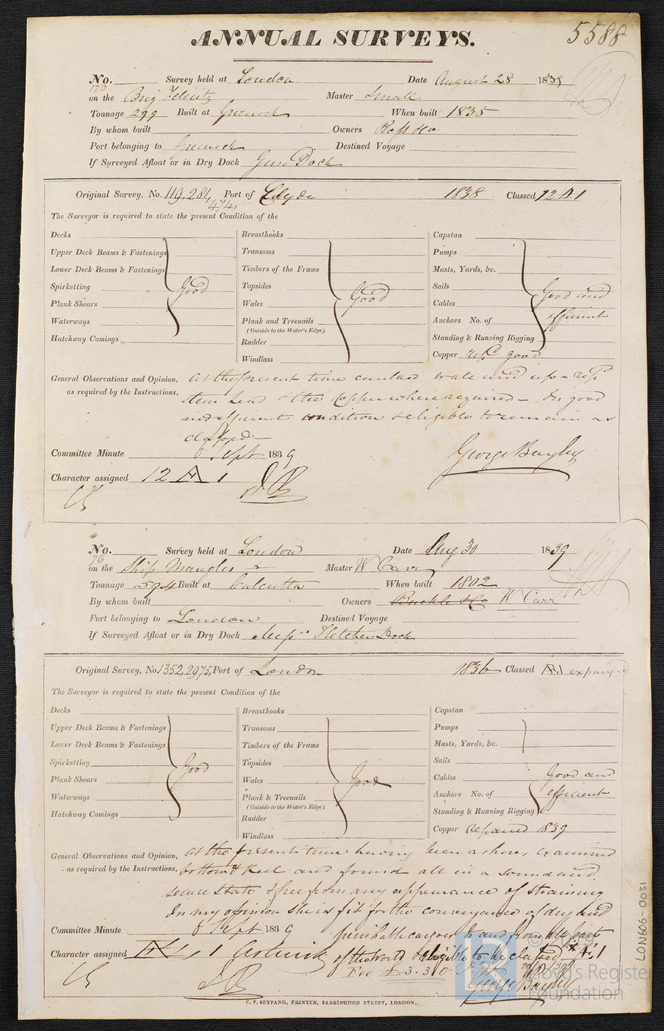 ANNUAL SURVEYS.
5588
No. Survey held at London Date August 28 1839
120
on the Brig Felicity Master Small
Tonnage 299 Built at Greenock When built 1835
By whom built Owners Ross & Co
Port belonging to Greenock Destined Voyage
If Surveyed Afloat or in Dry Dock Gun Dock
Original Survey, No. 119.281, Port of Clyde 1838 Classed 12 A 1
474,
The Surveyor is required to state the present Condition of the
Decks Breasthooks Capstan
Upper Deck Beams & Fastenings Transoms Pumps
Lower Deck Beams & Fastenings Timbers of the Frame Masts, Yards, &c.
Spirketting Good Topsides Good Sails Good and
Plank Shears Wales Cables efficient
Waterways Plank and Treenails Anchors No. of
(Outside to the Water's Edge)
Hatchway Comings Rudder Standing & Running Rigging
Windlass Copper repd good
General Observations and Opinion, At the present time caulked wales and up - repd
as required by the Instructions, stem lead & the Copper where required - In good
and efficient condition & eligible to remain as
classed -
Committee Minute Sept 1839 George Bayley
Character assigned 12 A 1
No. Survey held at London Date Aug 30 1839
76
on the Ship Mangles Master W Carr
Tonnage 594 Built at Calcutta When built 1802
By whom built Owners Buckle & Co W Carr
Port belonging to London Destined Voyage
If Surveyed Afloat or in Dry Dock Messrs Fletchers Dock
Original Survey, No. 1352, 2975, Port of London 1836 Classed Æ 1 expunged
The Surveyor is required to state the present Condition of the
Decks Breasthooks Capstan
Upper Deck Beams & Fastenings Transoms Pumps
Lower Deck Beams & Fastenings Timbers of the Frame Masts, Yards, &c.
Spirketting Good Topsides Sails
Plank Shears Wales Good Cables Good and
Waterways Plank & Treenails Anchors No. of efficient
(Outside to the Water's Edge)
Hatchway Comings Rudder Standing & Running Rigging
Windlass Copper repaired 1839
General Observations and Opinion, At the present time having been ashore, examined
as required by the Instructions, bottom & Keel and found all in a sound and
secure state & free from any appearance of straining
In my opinion she is fit for the conveyance of dry and
Committee Minute 3 Sept 1839 perishable cargoes to and from all parts
Character assigned Æ 1 of the world & eligible to be classed Æ 1
Fee £3.3.0
George Bayley
C. F. SEYFANG, PRINTER, FARRINGDON STREET, LONDON.
LON606-0031
Lloyd's Register
Foundation